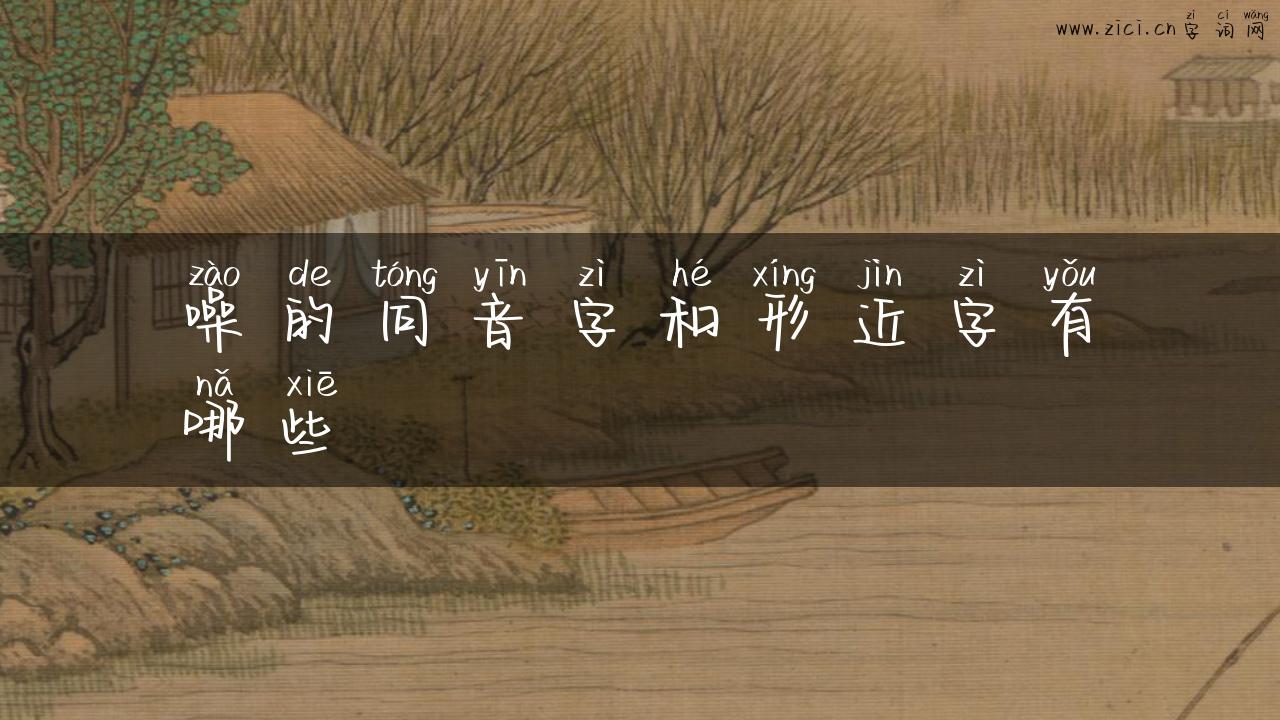 zì cí wǎng
www.zici.cn 字词网
zào de tóng yīn zì hé xíng jìn zì yǒu
噪的同音字和形近字有
nǎ xiē
哪些